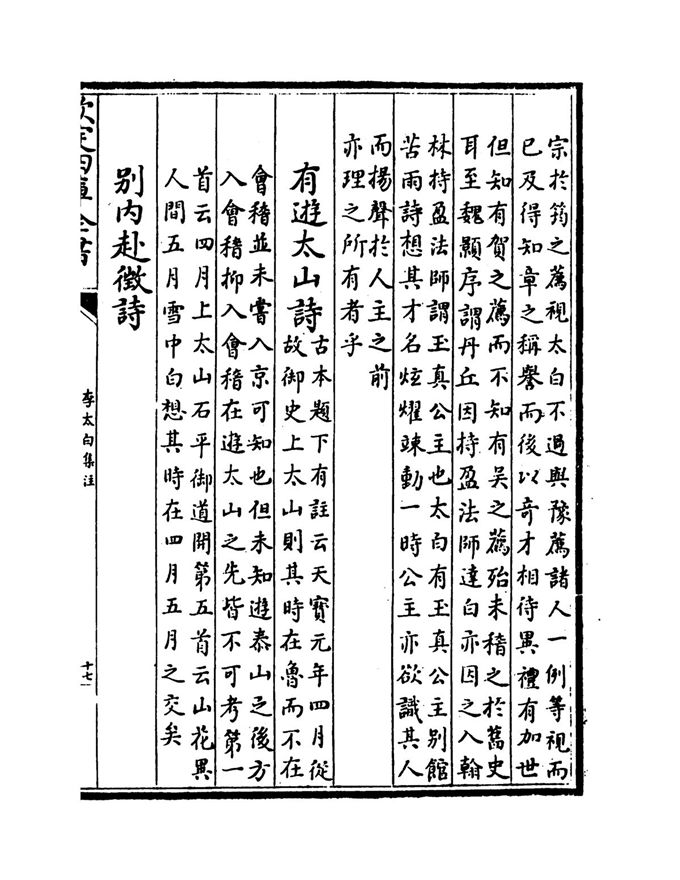 宗於筠之薦視太白不過與豫薦諸人一例等視而
已及得知章之稱譽而後以奇才相待異禮有加世
但知有賀之薦而不知有吳之薦殆未稽之於舊史
耳至魏顥序謂丹丘因持盈法師達白亦因之入翰
林持盈法師謂玉真公主也太白有玉真公主別館
苦雨詩想其才名炫耀竦動一時公主亦欲識其人
而揚聲於人主之前
亦理之所有者乎
有遊太山詩
古本題下有註云天寶元年四月從
故御史上太山則其時在魯而不在
會稽並未嘗入京可知也但未知遊泰山之後方
入會稽抑入會稽在遊太山之先皆不可考第一
首云四月上太山石平御道開第五首云山花異
人間五月雪中白想其時在四月五月之交矣
别内赴徵詩
欽定四庫全書
李太白集注
十七